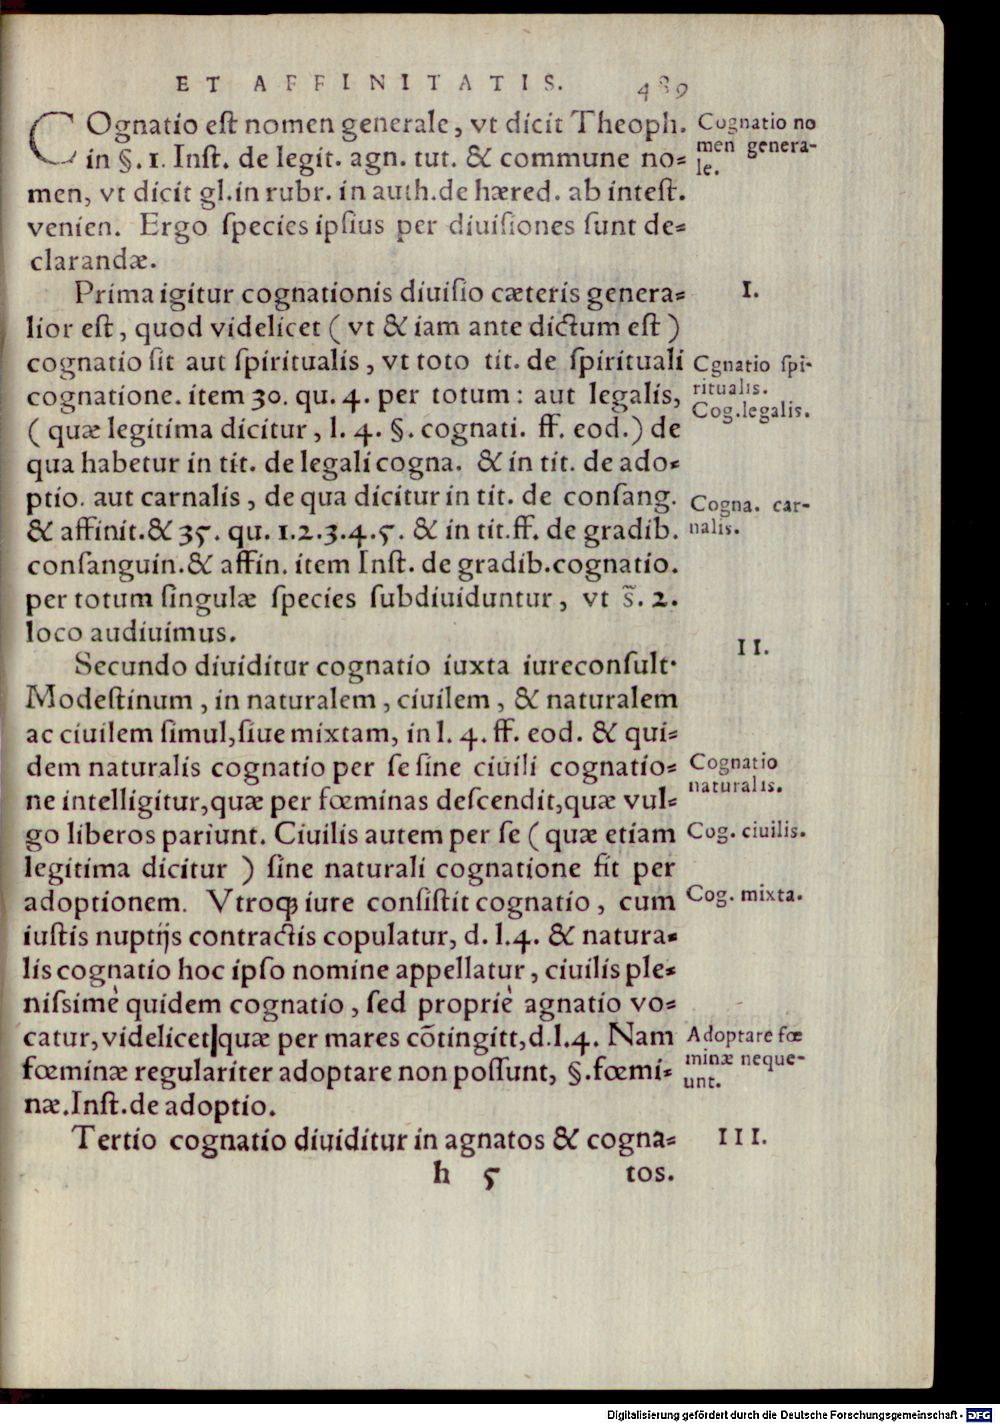 ET AFFINITATIS. 489
COgnatio eſt nomen generale, vt dicit Theoph.
in §. 1. Inſt. de legit. agn. tut. & commune no=
men, vt dicit gl. in rubr. in auth. de hæred. ab inteſt.
venien. Ergo ſpecies ipſius per diuiſiones ſunt de=
clarandæ.
Cognatio no
men genera-
le.
Prima igitur cognationis diuiſio cæteris genera=
lior eſt, quod videlicet ( vt & iam ante dictum eſt )
cognatio ſit aut ſpiritualis, vt toto tit. de ſpirituali
cognatione. item 30. qu. 4. per totum: aut legalis,
( quæ legitima dicitur, l. 4. §. cognati. ff. eod.) de
qua habetur in tit. de legali cogna. & in tit. de ado=
ptio. aut carnalis, de qua dicitur in tit. de conſang.
& affinit. & 35. qu. 1.2.3.4.5. & in tit. ff. de gradib.
conſanguin. & affin. item Inſt. de gradib. cognatio.
per totum ſingulæ ſpecies ſubdiuiduntur, vt s̃. 2.
loco audiuimus.
I.
Cgnatio ſpi-
ritualis.
Cog. legalis.
Cogna. car-
nalis.
Secundo diuiditur cognatio iuxta iureconſult.
Modeſtinum, in naturalem, ciuilem, & naturalem
ac ciuilem ſimul, ſiue mixtam, in l. 4. ff. eod. & qui=
dem naturalis cognatio per ſe ſine ciuili cognatio=
ne intelligitur, quæ per fœminas deſcendit, quæ vul=
go liberos pariunt. Ciuilis autem per ſe ( quæ etiam
legitima dicitur ) ſine naturali cognatione fit per
adoptionem. Vtroqꝫ iure conſiſtit cognatio, cum
iuſtis nuptijs contractis copulatur, d. l. 4. & natura=
lis cognatio hoc ipſo nomine appellatur, ciuilis ple=
niſsimè quidem cognatio, ſed propriè agnatio vo=
catur, videlicet quæ per mares cõtingitt, d. l. 4. Nam
fœminæ regulariter adoptare non poſſunt, §. fœmi=
næ. Inſt. de adoptio.
II.
Cognatio
naturalis.
Cog. ciuilis.
Cog. mixta.
Adoptare fœ
minæ neque-
unt.
Tertio cognatio diuiditur in agnatos & cogna=
III.
h 5 tos.
Digitalisierung gefördert durch die Deutsche Forschungsgemeinschaft - DFG